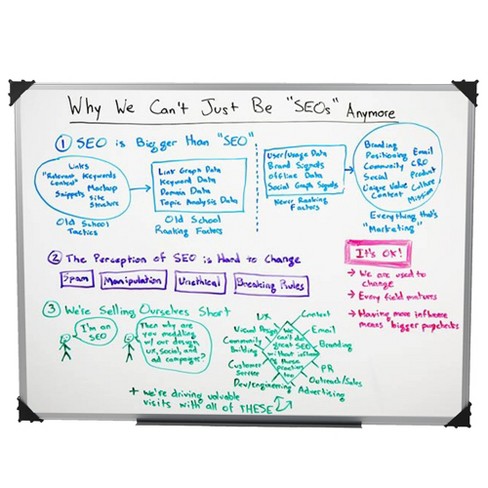 Why We Can't Just Be "SEOs" Anymore
1 SEO is Bigger than "SEO"
Links
"Relevant Keywords
Content"
Snippets Markup
Site
Structure
Old School
Tactics
Link Graph Data
Keyword Data
Domain Data
Topic Analysis Data
Old School
Ranking Factors
User/Usage Data
Brand Signals
Offline Data
Social Graph Signals
Newer Ranking
Factors
Branding
Positioning Email
Community CRO
Social Product
Unique Value Culture
Content Mission
Everything that's
"Marketing"
2 The Perception of SEO is Hard to Change
Spam Manipulation Unethical Breaking Rules
It's OK!
→ We are used to
change
→ Every field matures
→ Having more influence
means bigger paychecks
3 We're Selling Ourselves Short
I'm an
SEO
Then why are
you meddling
w/ our design
UX, social, and
ad campaigns?
UX
Content
Visual Design
Email
Community
Building
Branding
Customer
Service
PR
Dev/engineering
Outreach/Sales
Advertising
We can't
do
great SEO
without influencing
these
practices
too
+ we're driving valuable
visits with all of THESE